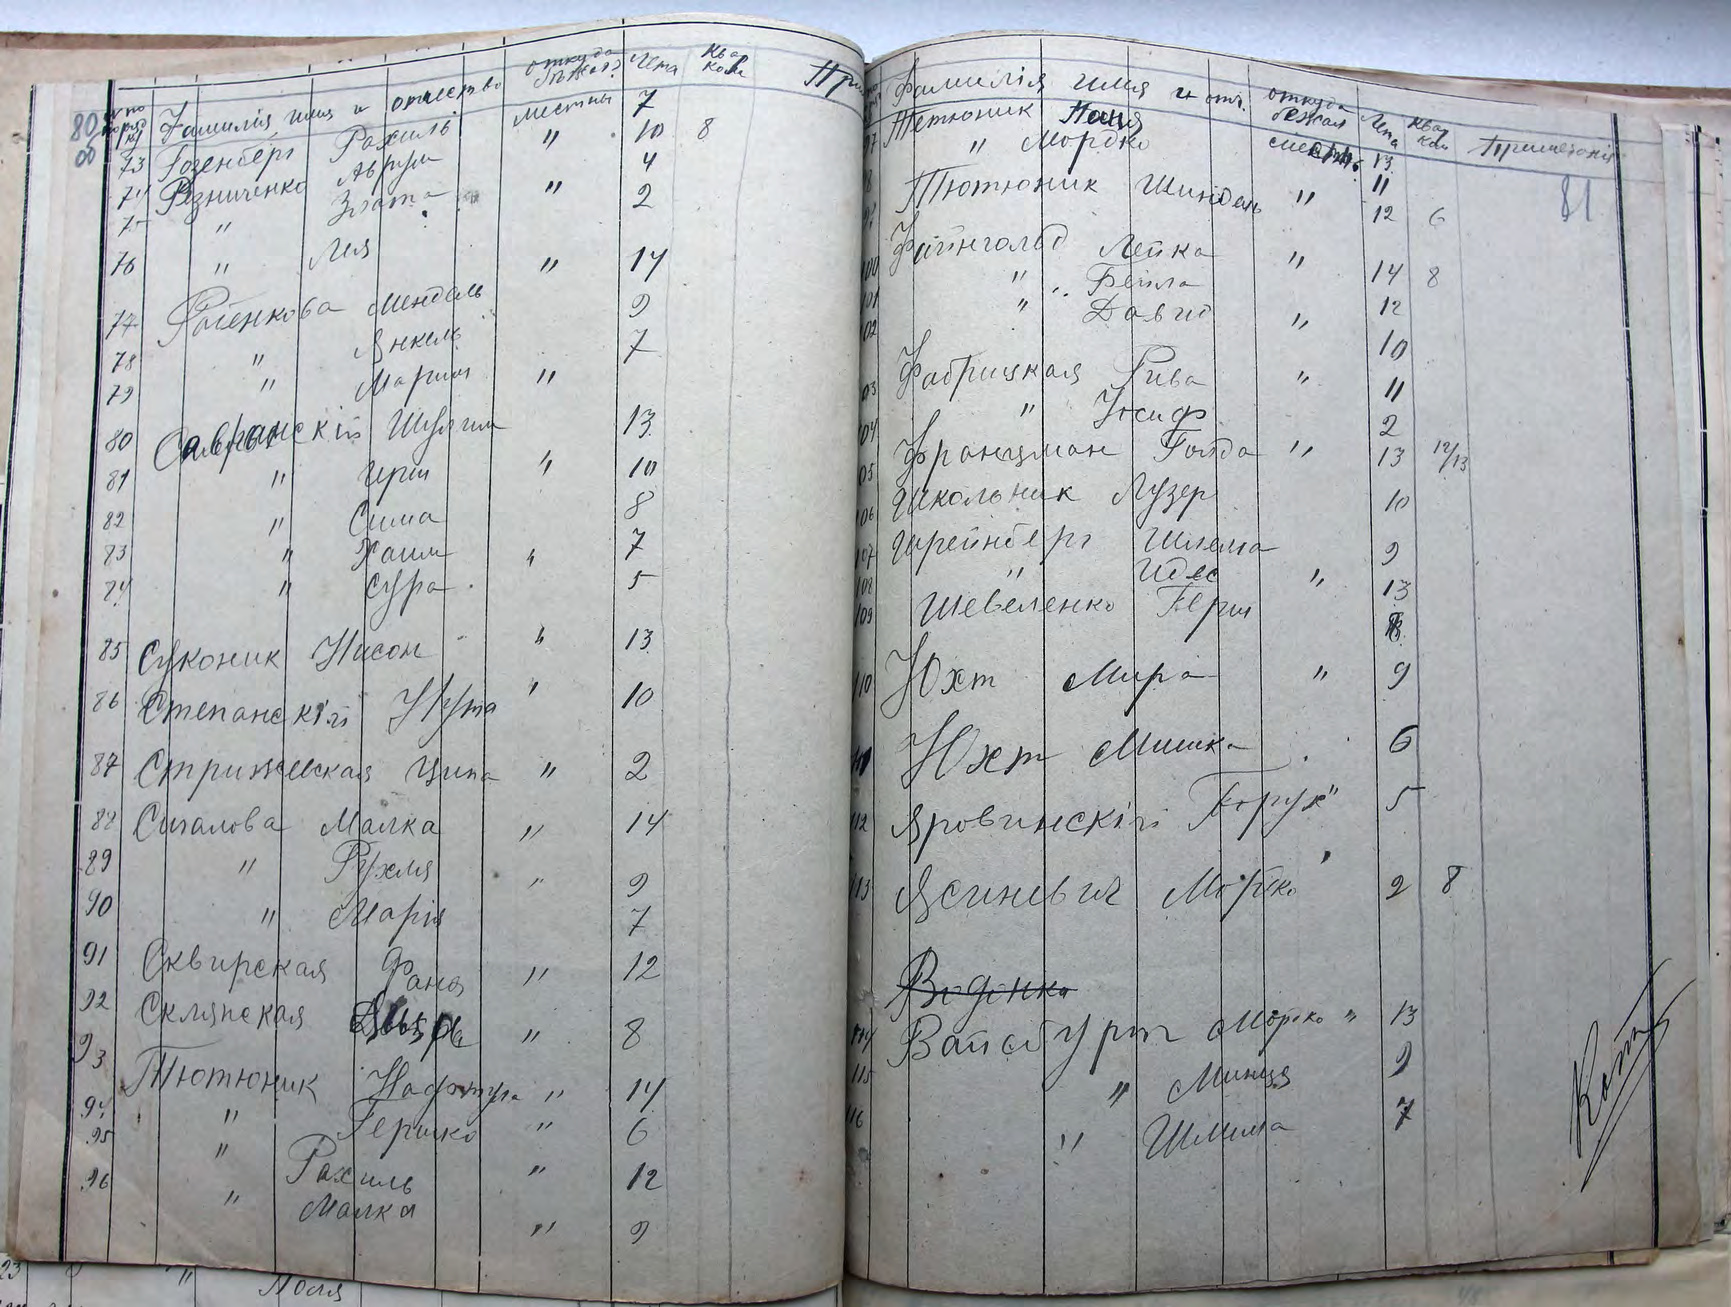 80 об
№ по поряд ку Фамилія, имя и отчество откуда бежал? Лета Ква ком Прим
73 Розенберг Рахиль местны 7
74 Резниченко Аврум " 10 8
75 " Злата 4
76 " Лея " 2
77 Рагенкова Мендель " 14
78 " Янкель 9
79 " Маріям " 7
80 Савранскій Шулим 13
81 " Герш " 10
82 " Сима 8
83 " Хаим " 7
84 " Сура 5
85 Суконик Нисон " 13
86 Степанскій Нута " 10
87 Стрижевская Ципа " 2
88 Сигалова Малка " 14
89 " Рухля " 9
90 " Марія 7
91 Сквирская Фаня " 12
92 Склянская " 8
93 Тютюник Нафтула " 14
94 " Гершко " 6
95 " Рахиль " 12
96 " Малка " 9
23 " Поля
Фамилія имя и отч. откуда бежал Лета Ква ком Примечанія
81
97 Тетюник 13
98 " Мордко 11
99 Тютюник Шиндель " 12 6
100 Файнгольд Лейка " 14 8
101 " Бейла 12
102 " Давид " 10
103 Фабрицкая Рива " 11
104 " Юсиф 2
105 Францман Голда " 13 12/13
106 Школьник Лузер 10
107 Шрейнберг Шлема 9
108 " Идес " 13
109 Шевеленко Герш
110 Юхт Мира " 9
111 Юхт Мишка 6
112 Яровинскій Борух " 5
113 Ясиневич Мордко " 2 8
Воденко
114 Вайсбурт Мордко " 13
115 " Минця 9
116 " Шлима 7